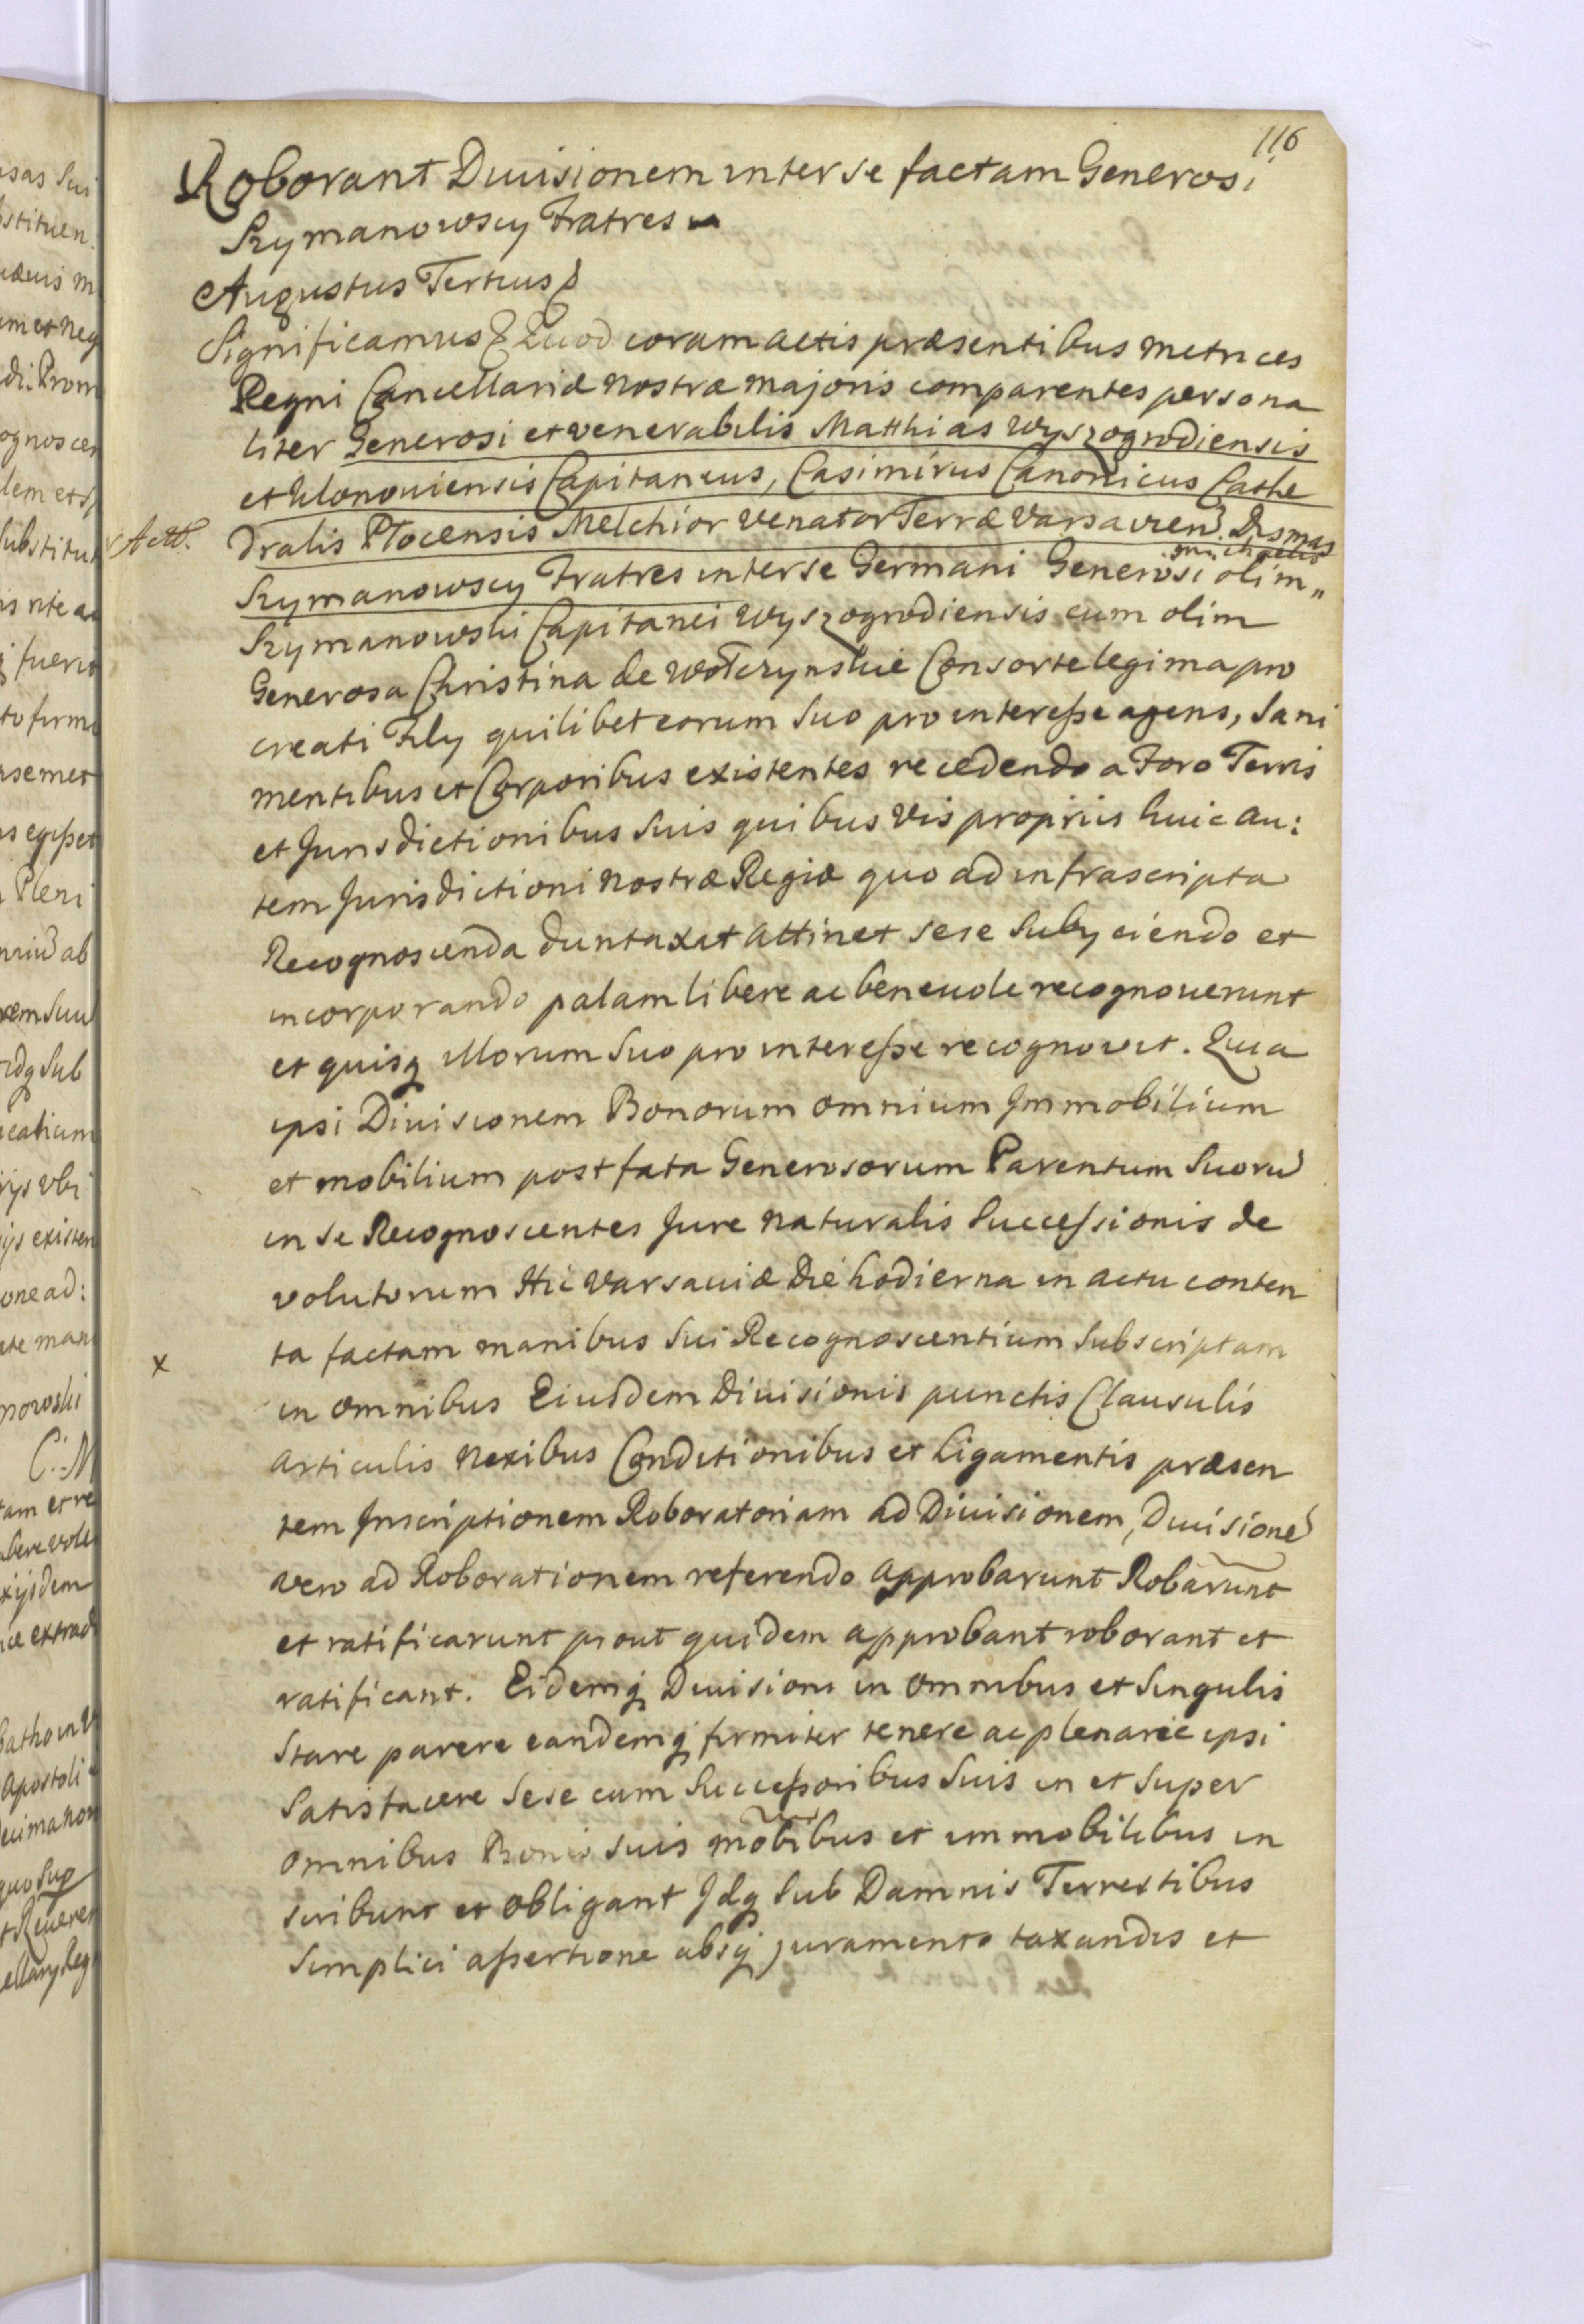 116
Roborant Diuisionem inter se factam Generosi
Szymanowscy Fratres
Augustus Tertius
Significamus Quod coram actis præsentibus metrices
Regni Cancellariæ nostræ majoris comparentes persona
liter Generosi et venerabilis Matthias Wyszogrodiensis
et Klonouiensis Capitaneus, Casimirus Canonicus Cathe
dralis Plocensis Melchior Venator Terræ Varsavien. Dismas
Actt.
Szymanowscy Fratres inter se Germani Generosi olim
Michaelis
Szymanowski Capitanei Wyszogrodiensis cum olim
Generosa Christina de Wołczynskie Consorte legima pro
creati Filij quilibet eorum suo pro interesse agens, sani
mentibus et Corporibus existentes recedendo a Foro Terris
et Jurisdictionibus suis quibus vis proprijs huic au:
tem Jurisdictioni nostræ Regiæ quo ad infrascripta
Recognoscenda duntaxat attinet sese subijciendo et
incorporando palam libere ac beneuole recognouerunt
et quisq illorum suo pro interesse recognovit. Quia
ipsi Diuisionem Bonorum omnium Immobilium
et mobilium post fata Generosorum Parentum Suoru
in se Recognoscentes Jure naturalis Successionis de
volutorum Hic Varsauiæ Die hodierna in actu conten
ta factam manibus sui Recognoscentium subscriptam
x
in omnibus Eiusdem Diuisionis punctis Clausulis
articulis nexibus Conditionibus et ligamentis præsen
tem Inscriptionem Roboratoriam ad Diuisionem, Diuisione
vero ad Roborationem referendo approbarunt Robarunt
et ratificarunt prout quidem approbant roborant et
ratificant. Eidemq Diuisioni in omnibus et singulis
stare parere eandemq firmiter tenere ac plenarie ipsi
satisfacere sese cum Successoribus suis in et super
omnibus Bonis suis mobibus et immobilibus in
scribunt et obligant Idq sub Damnis Terrestibus
simplici assertione absq juramento taxandis et